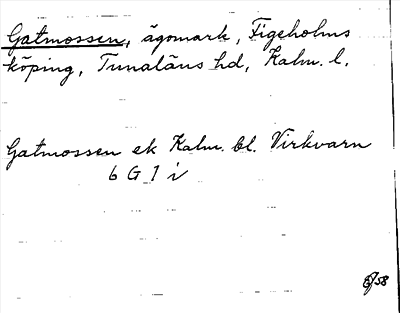 Gatmossen, ägomark, Figeholms
köping, Tunaläns hd, Kalm. l.
Gatmossen ek Kalm. bl. Virkvarn
6 G 1 i
58